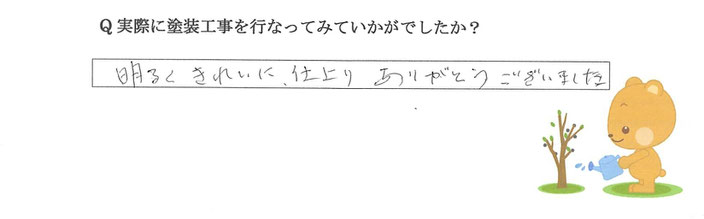 Q実際に塗装工事を行なってみていかがでしたか？
明るくきれいに、仕上り ありがとうございました